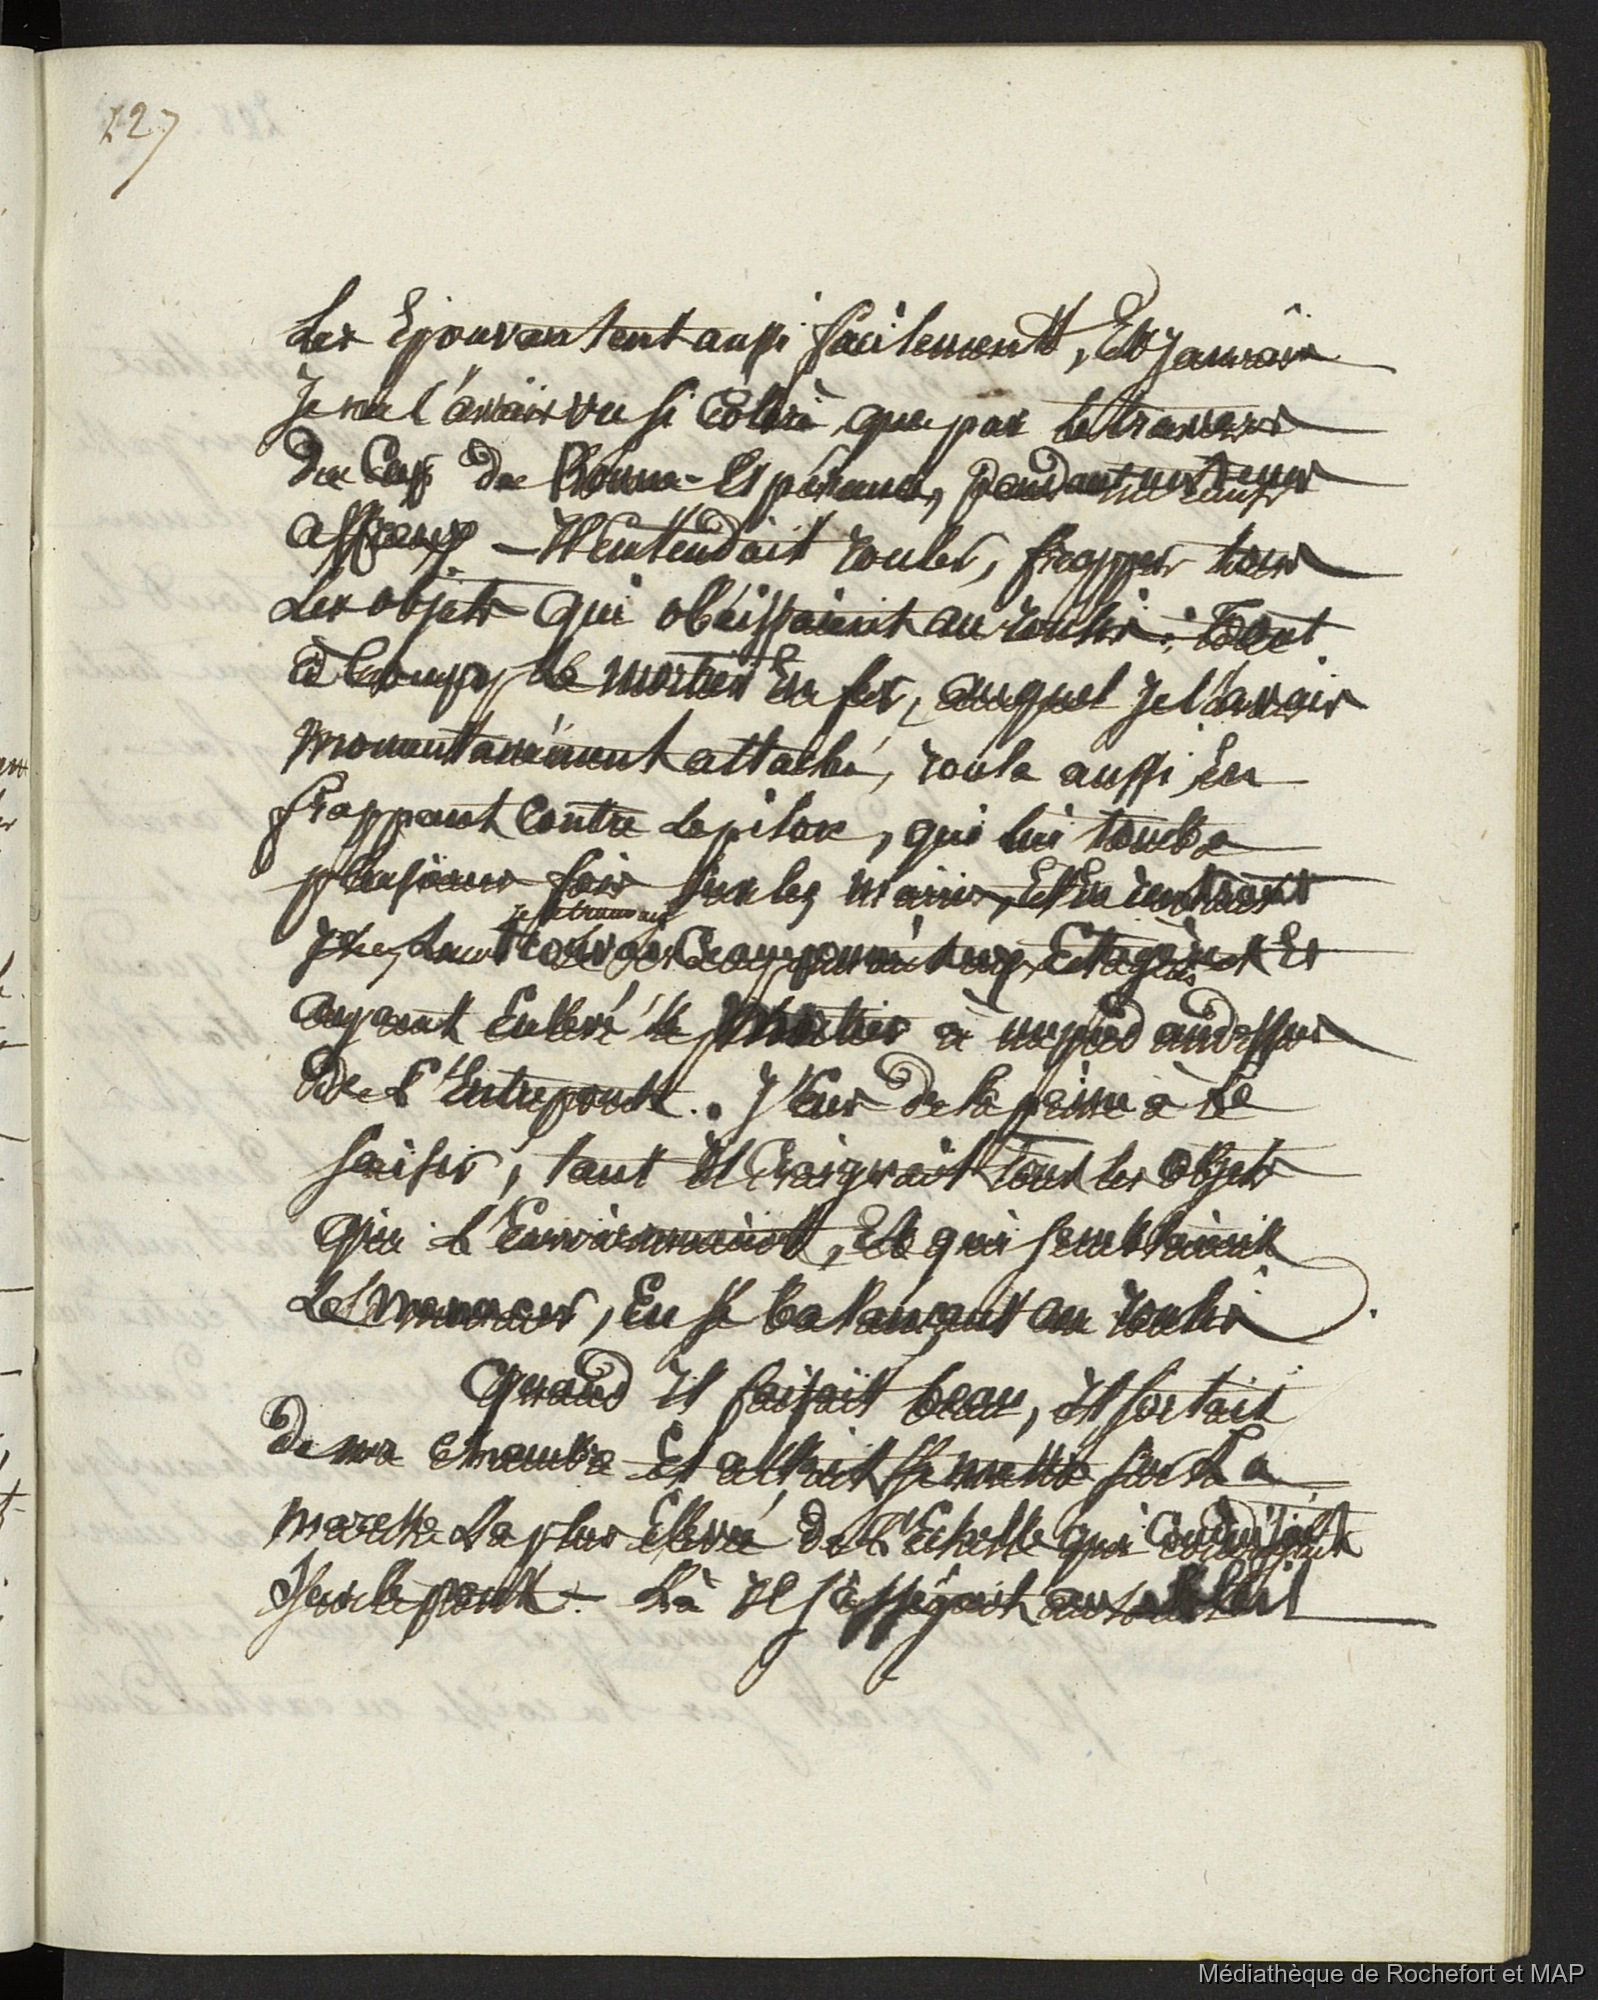 227
Les Epouvantent aussi facilement, Et jamais
Je ne l'avais vu si Coléré, que par le travers
du Cap de Bonne-Espérance, pendant un temps
affreux - Il entendait rouler, frapper tous
Les objets qui obéissaient au roulis: Tout
à Coup, le mortier En fer, auquel je l'avais
momentanément attaché, roula aussi En
frappant Contre Le pilon, qui lui tomba
plusieurs fois sur les mains, Et En rentrant
je le trouvai
chez moi Et
ayant Enlevé le Mortier à un pied au dessus
De L'Entrepont.. J'Eus De la peine à Le
saisir, tant Il Craignait tous les Objets
qui L'Environnaient, Et qui semblaient
Le menacer, En se balançant au roulis.
Quand Il faisait beau, Il sortait
De ma chambre Et allait se mettre sur La
marche La plus Elevée De L'Echelle qui Conduisait
sur le pont - Là Il s'asseyait au soleil
Médiathèque de Rochefort et MAP